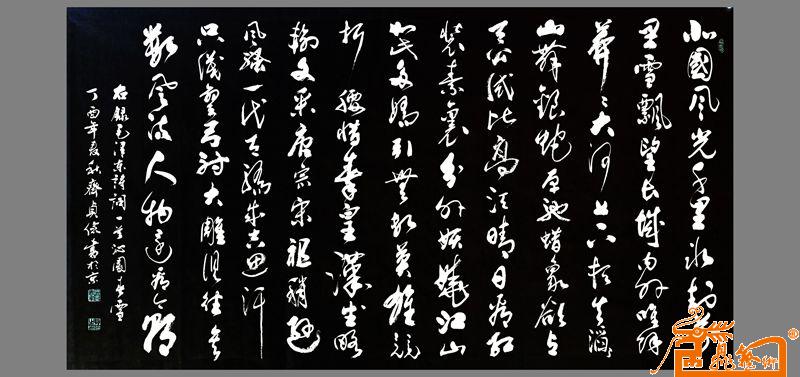 北國风光千里冰封万
里雪飘望长城内外惟馀
莽莽大河上下顿失滔滔
山舞銀蛇原驰蜡象欲与
天公试比高须晴日看红
装素裹分外妖娆江山
如此多娇引無数英雄竞
折腰惜秦皇漢武略
输文采唐宗宋祖稍逊
风骚一代天骄成吉思汗
只识弯弓射大雕俱往矣
数风流人物还看今朝
右録毛泽東诗詞一首沁園春雪
丁酉年夏秋齋貞俭書於京